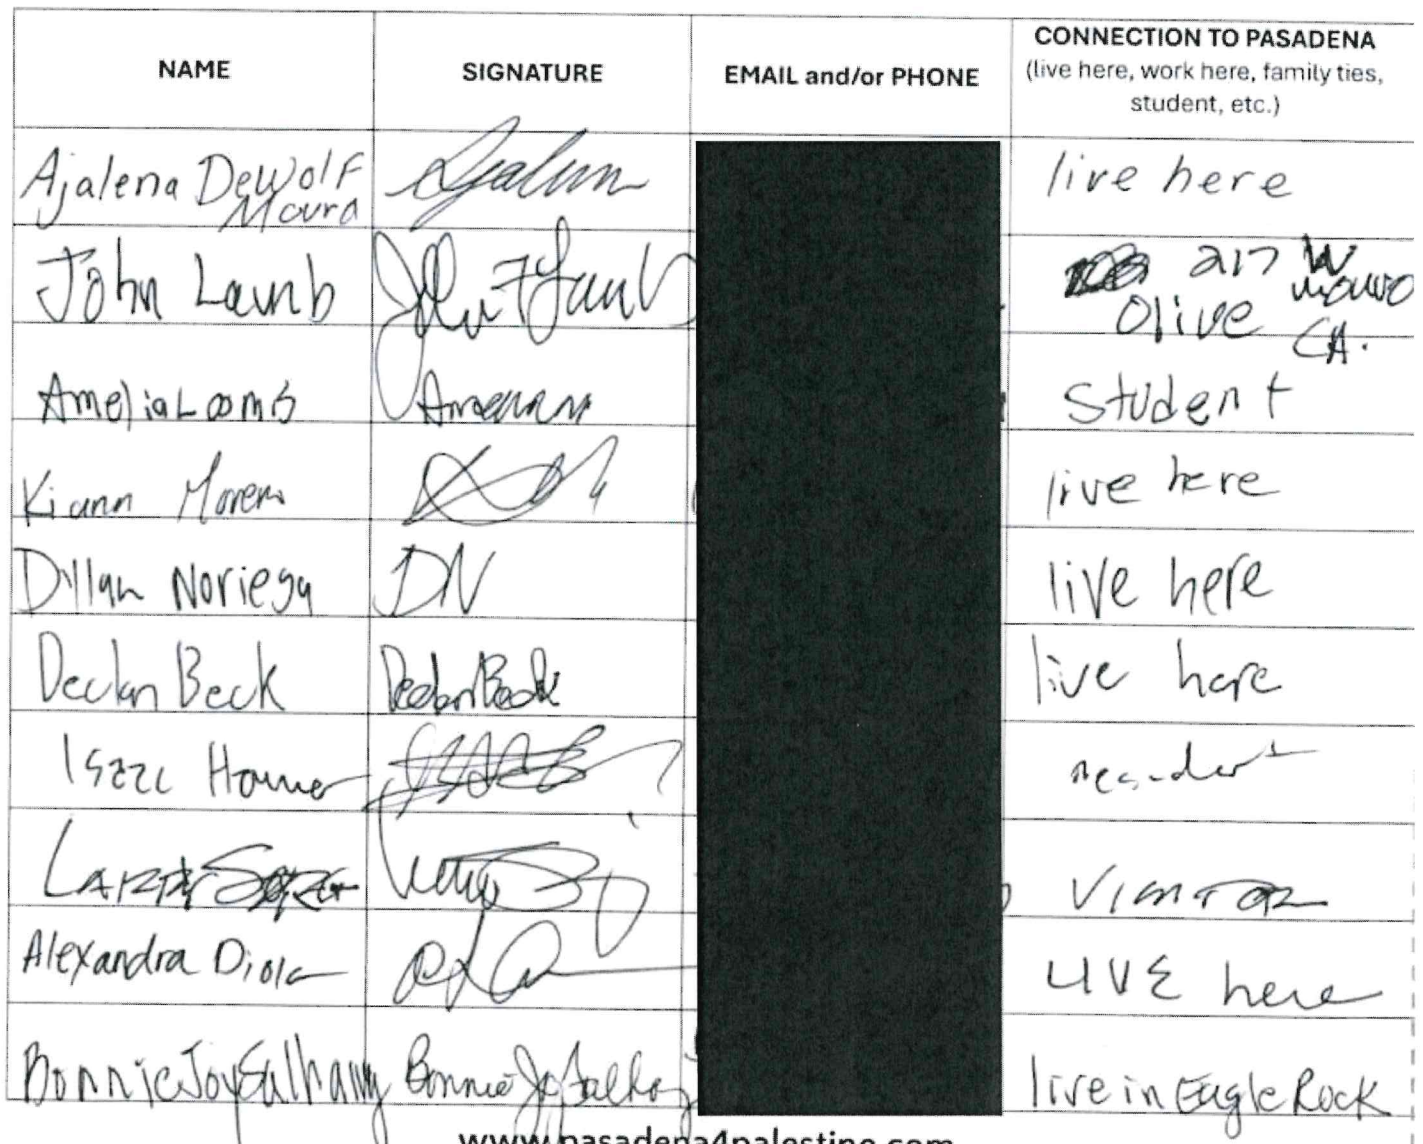 NAME SIGNATURE EMAIL and/or PHONE CONNECTION TO PASADENA
(live here, work here, family ties,
student, etc.)
Ajalena DeWolf live here
Moura
John Laumb 217 W
Olive
CA.
Amelia Loomis student
Kiann Moreno live here
Dillan Noriega DN live here
Declan Beck Declan Beck live here
Isaac resident
Larry
Alexandra LIVE here
Bonnie Joy Salhany Bonnie Joy live in Eagle Rock
www.pasadena4palestine.com